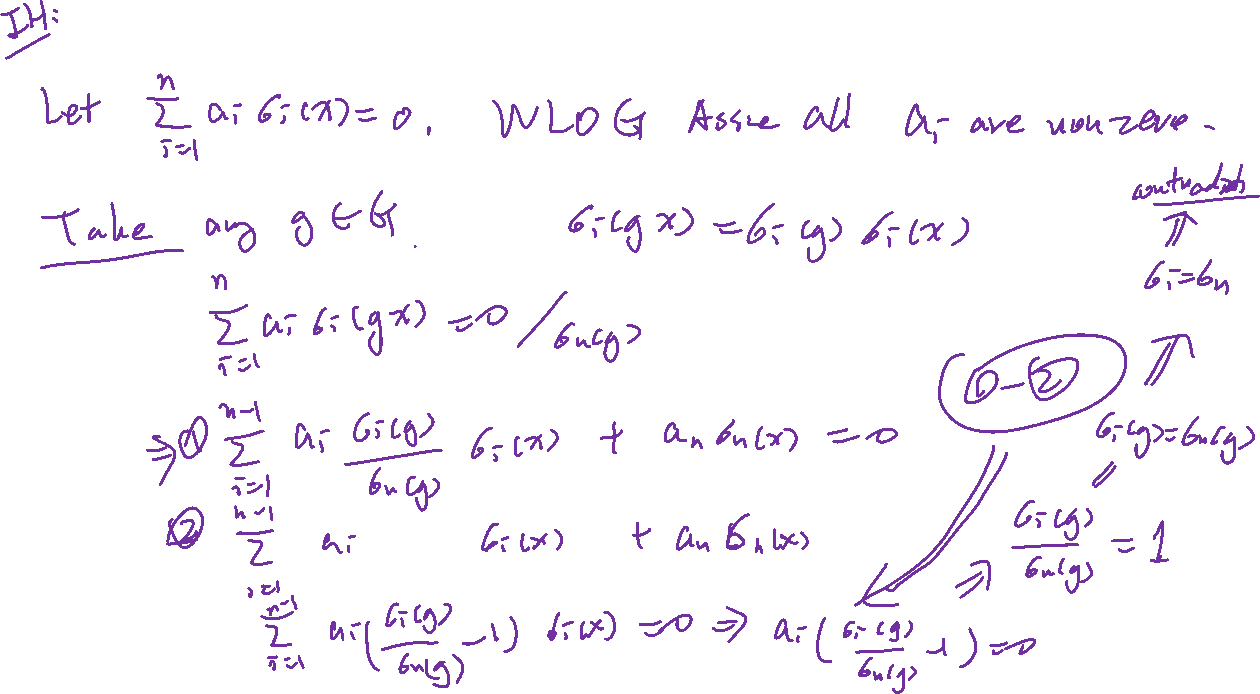 IH:
Let \sum_{i=1}^{n} a_i σ_i(x) = 0. WLOG Assue all a_i are nonzero.
Take any g ∈ G. σ_i(gx) = σ_i(g) σ_i(x)
\sum_{i=1}^{n} a_i σ_i(gx) = 0 / σ_n(g)
⇒ ① \sum_{i=1}^{n-1} a_i \frac{σ_i(g)}{σ_n(g)} σ_i(x) + a_n σ_n(x) = 0
② \sum_{i=1}^{n-1} a_i σ_i(x) + a_n σ_n(x)
(①-②)
\sum_{i=1}^{n-1} a_i (\frac{σ_i(g)}{σ_n(g)} - 1) σ_i(x) = 0 ⇒ a_i (\frac{σ_i(g)}{σ_n(g)} - 1) = 0
⇒ \frac{σ_i(g)}{σ_n(g)} = 1
⇒ σ_i(g) = σ_n(g)
⇒ σ_i = σ_n
⇒ contradicts